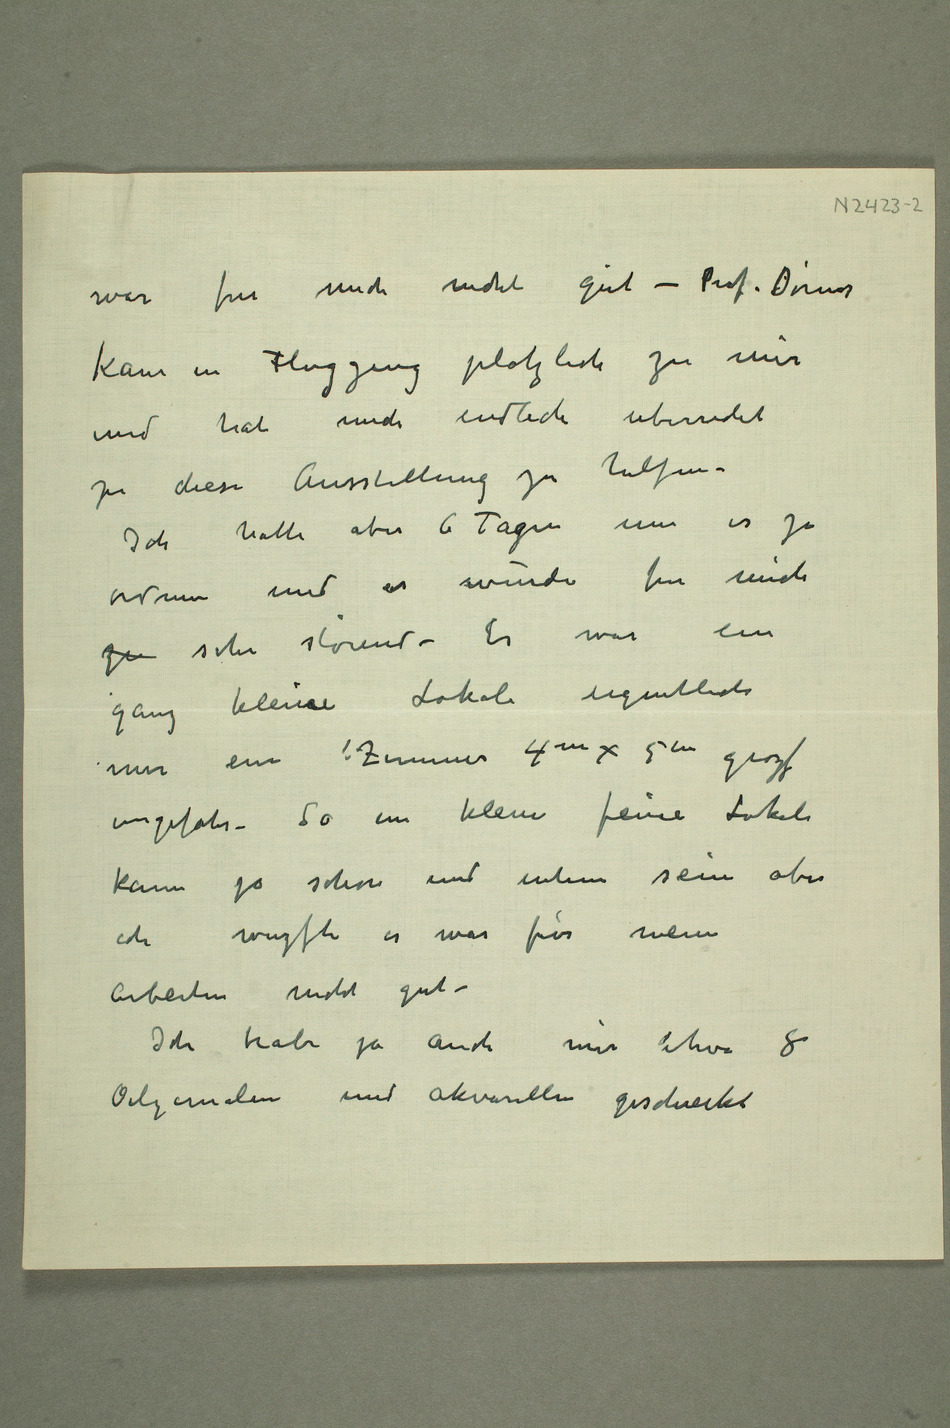 N2423-2
war für mich nicht gut – Prof. Dörner
kam in Flugzeug plötzlich zu mir
und hat mich endlich uberredet
zu diese Ausstellung zu helfen –
Ich hatte aber 6 Tagen um es zu
ordnen und es wurde fur mich
sehr störend – Es war ein
ganz kleine Lokale eigentlich
nur ein Zimmer 4m x 5m grozf
ungefahr – So ein klein feine Lokale
kann ja schön und intim sein aber
ich wuzfte es war für meine
Arbeiten nicht gut –
Ich habe ja auch nur etwa 8
Oelgemalen und Akvarellen geschickt